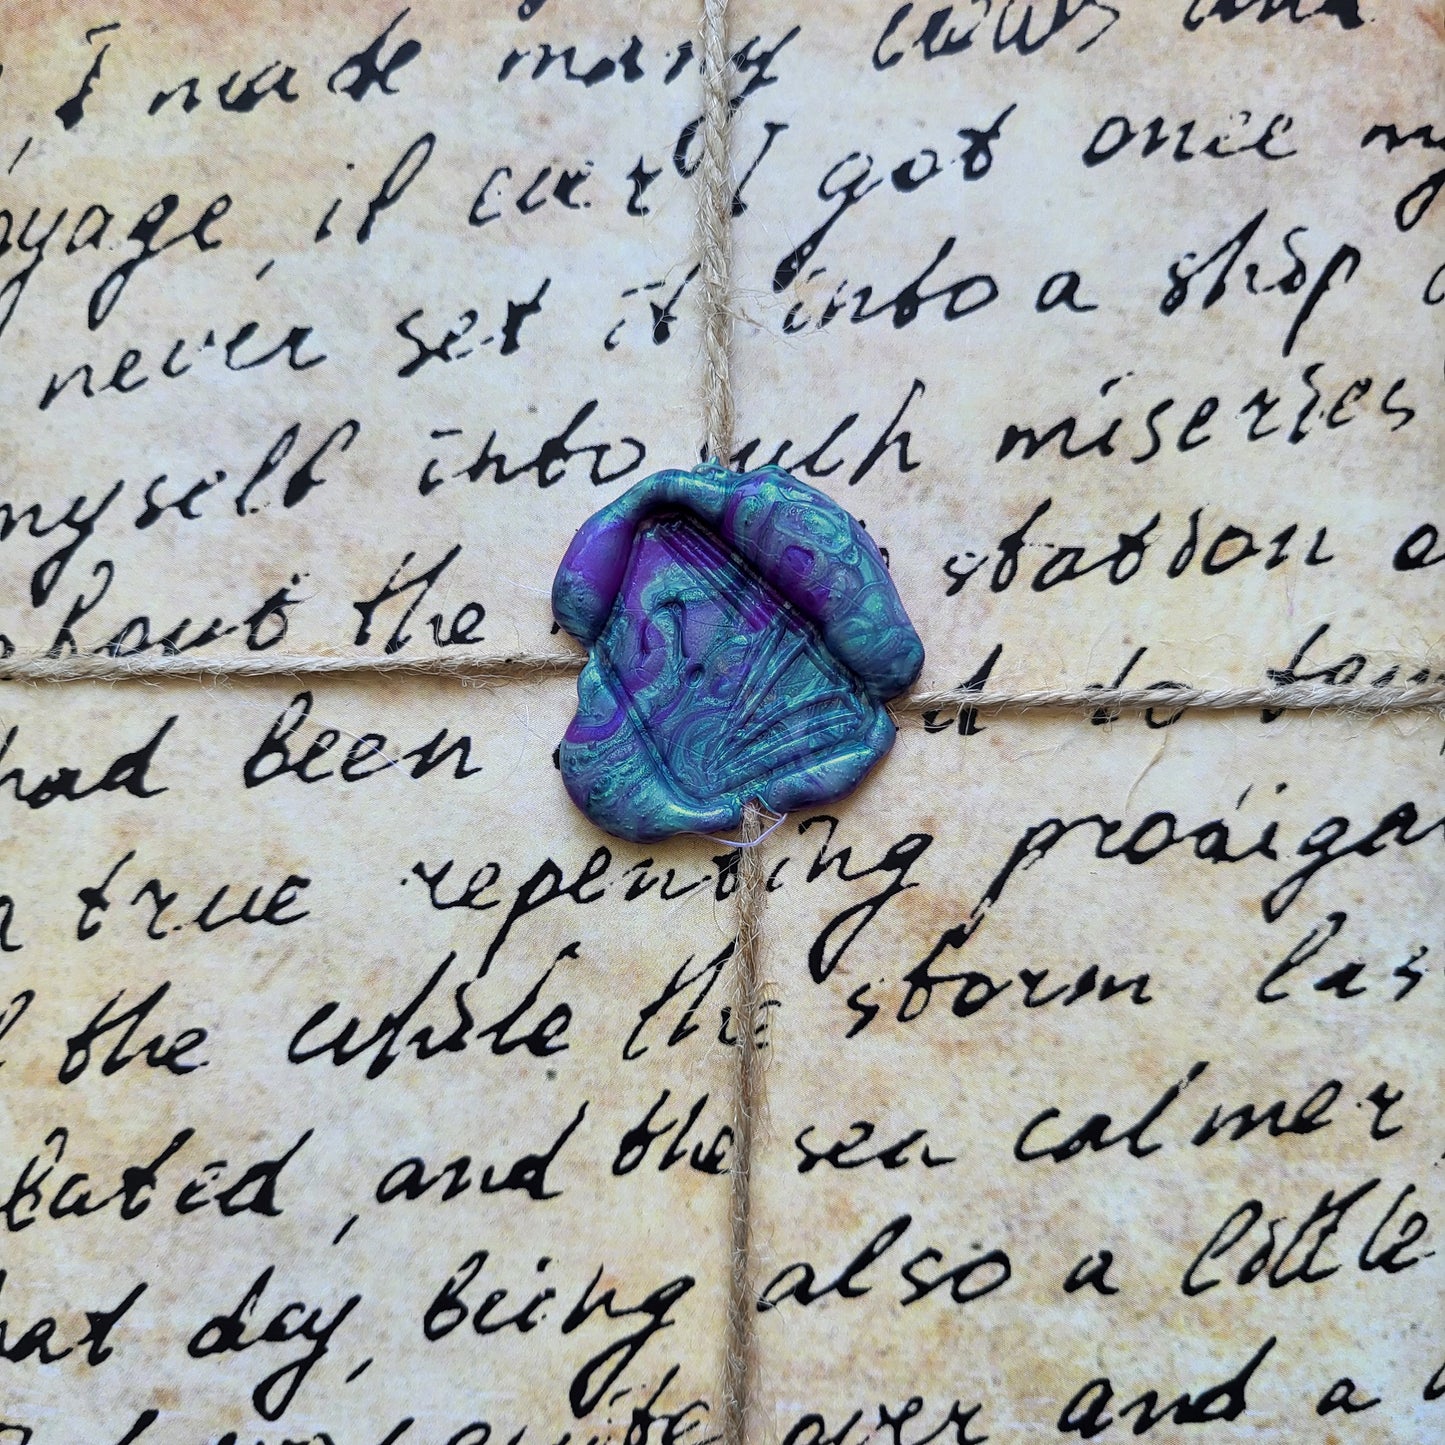 I made many vows and
oyage, if ever I got once my
never set it into a ship
myself into such miseries
about the station
had been to
true repenting prodiga
the while the storm las
bated, and the sea calmer
hat day, being also a little
quite over and a